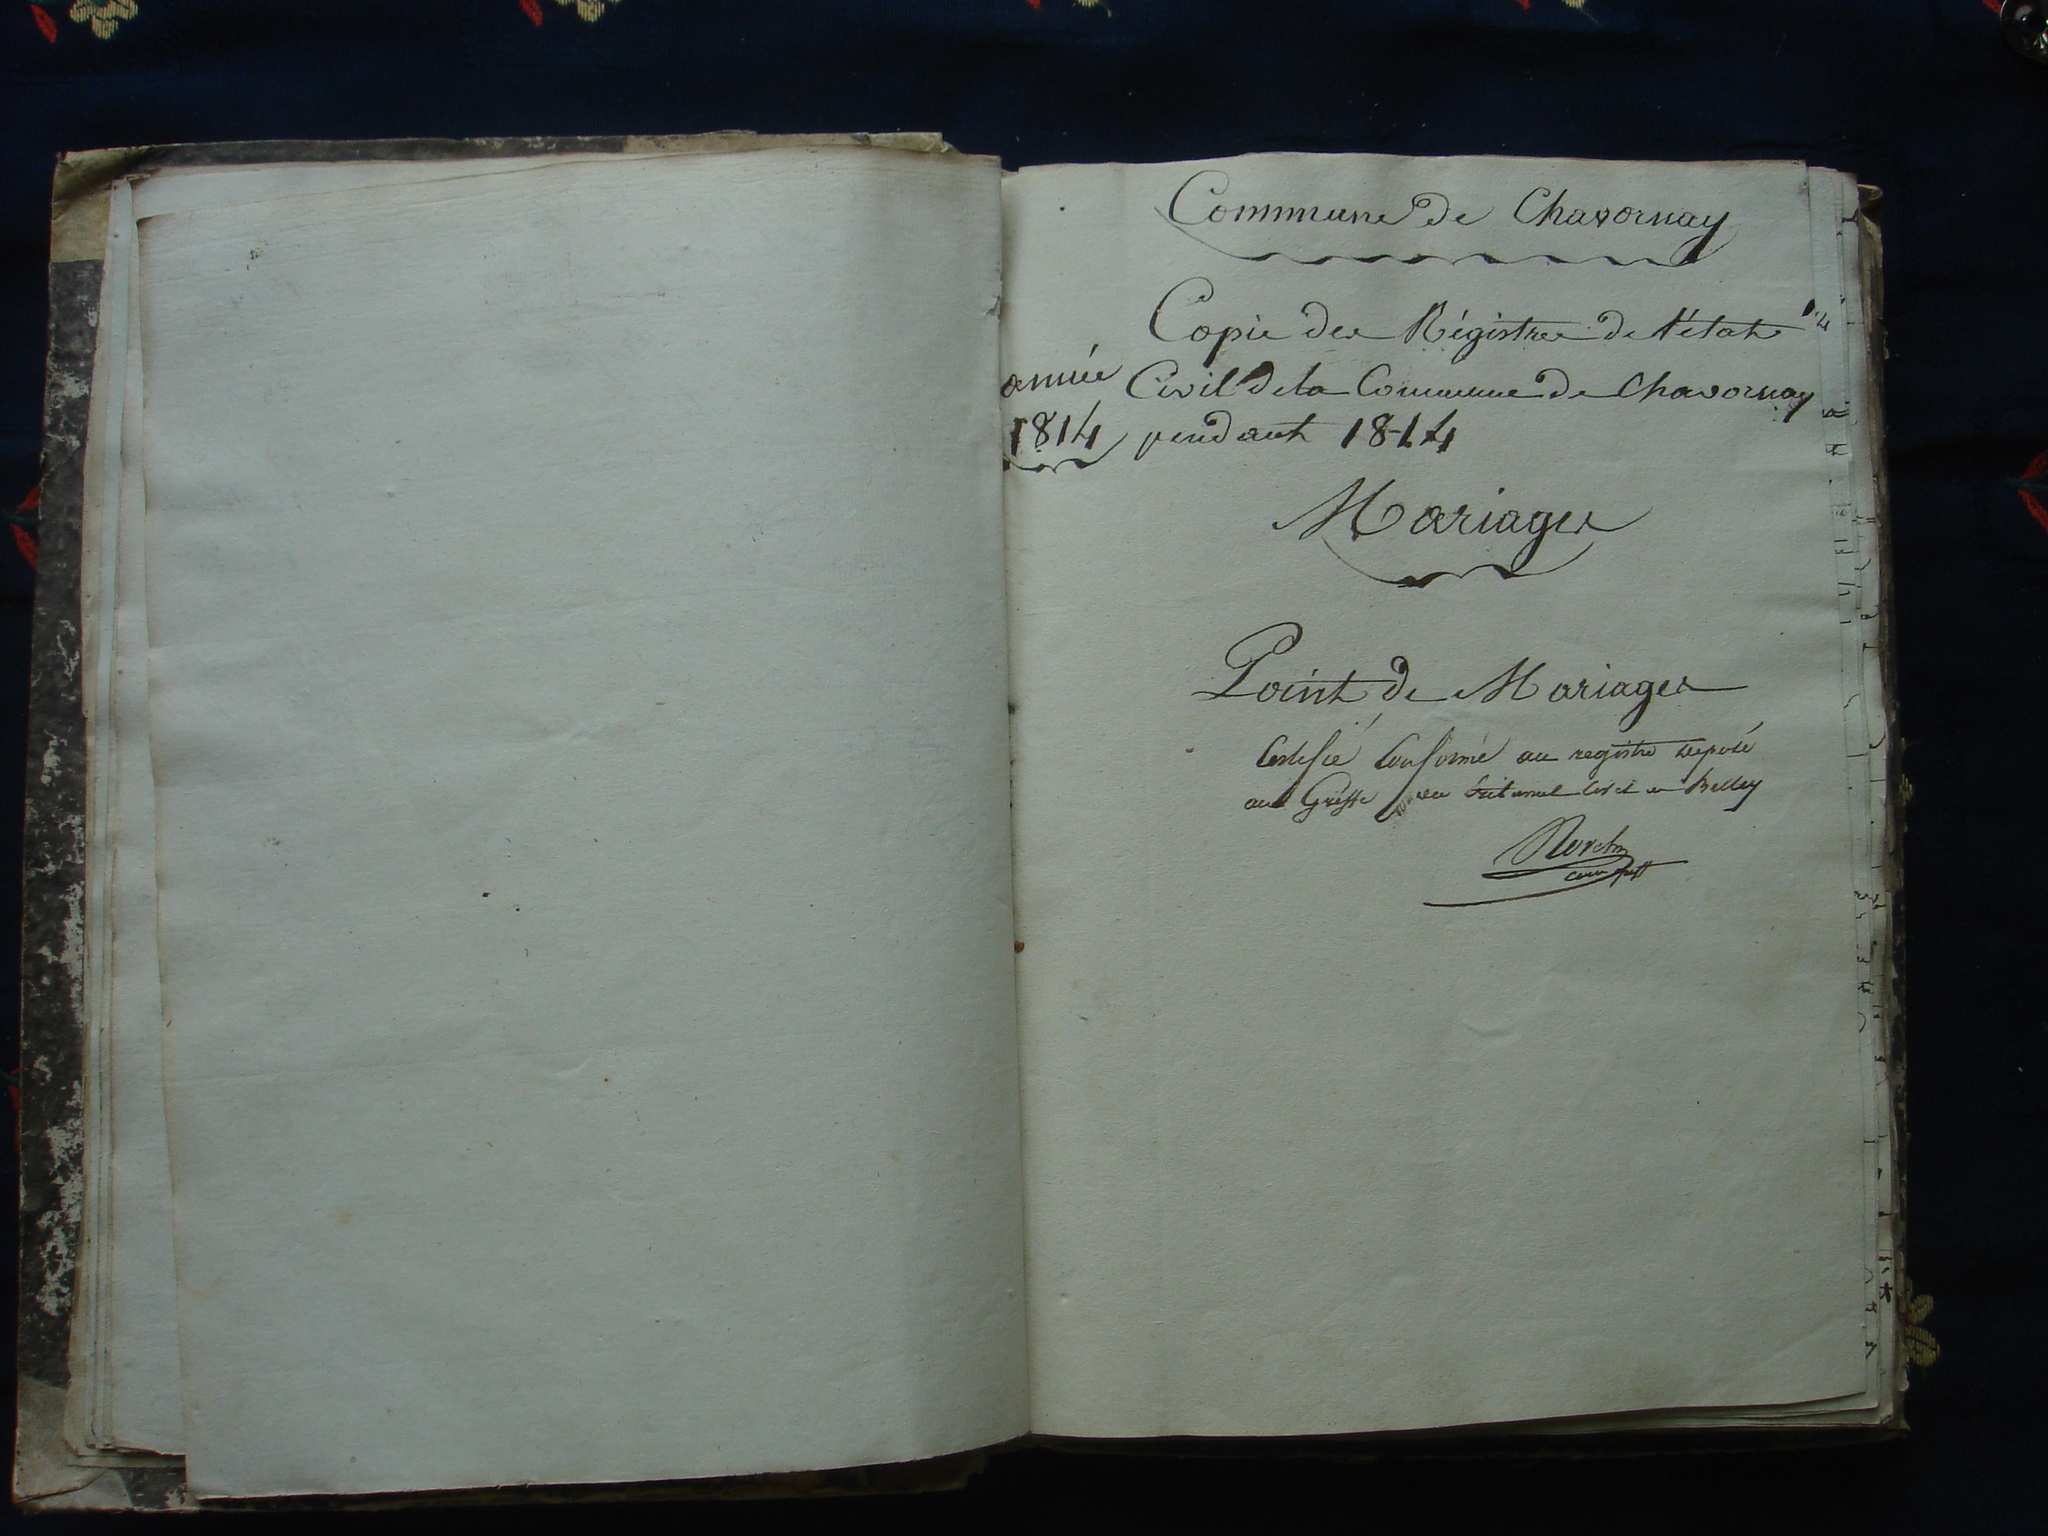 Commune de Chavornay
Copie des Régistres de l'état
année Civil de la Commune de Chavornay
1814 pendant 1814
Mariages
Point de Mariages
Certifié Conforme au registre déposé
au Greffe du tribunal Civil de Belley